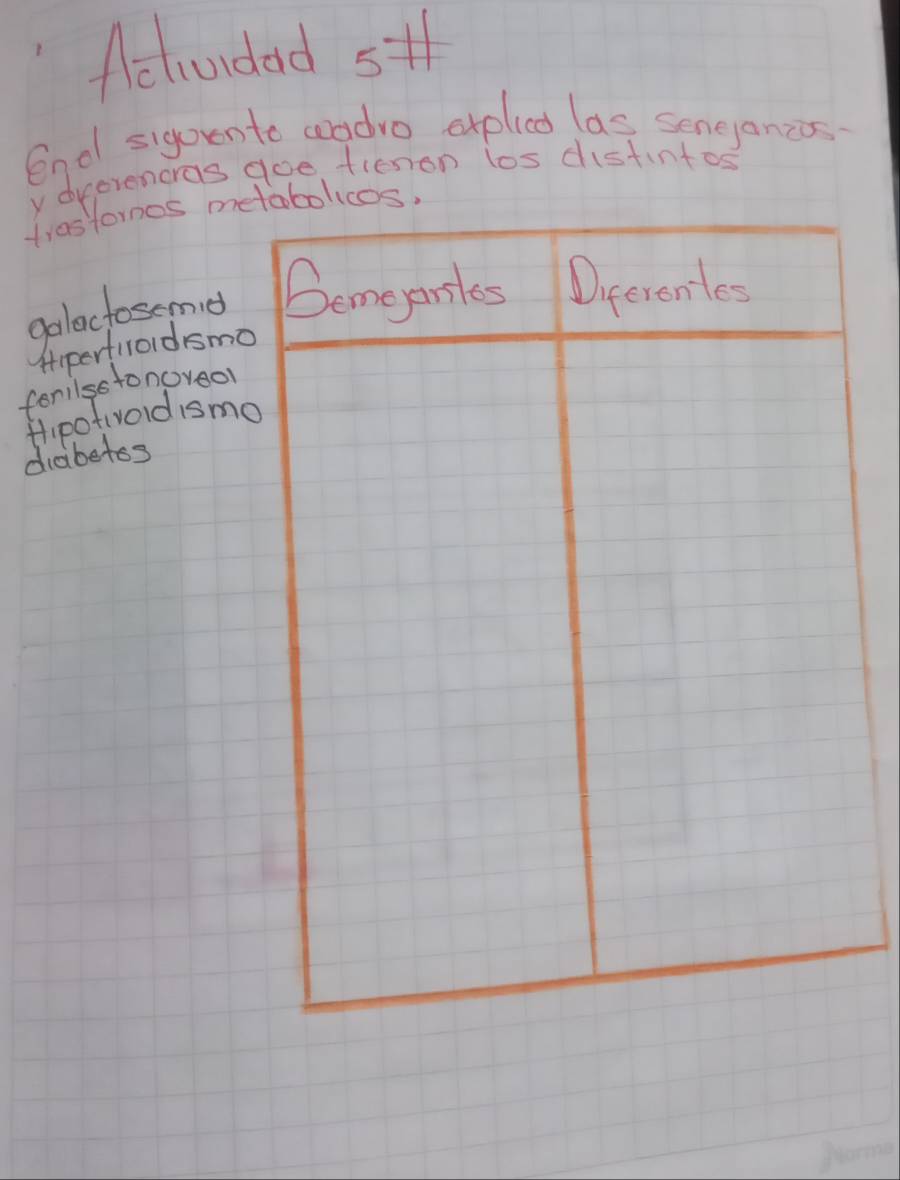 Actividad 5#
En el siguiente cuadro explica las senejanzas-
y diferencias que tienen los distintos
trastornos metabolicos.
Semejantes Diferentes
galactosemia
Hipertiroidismo
fenilsetonoreal
Hipotiroidismo
diabetes
Norma